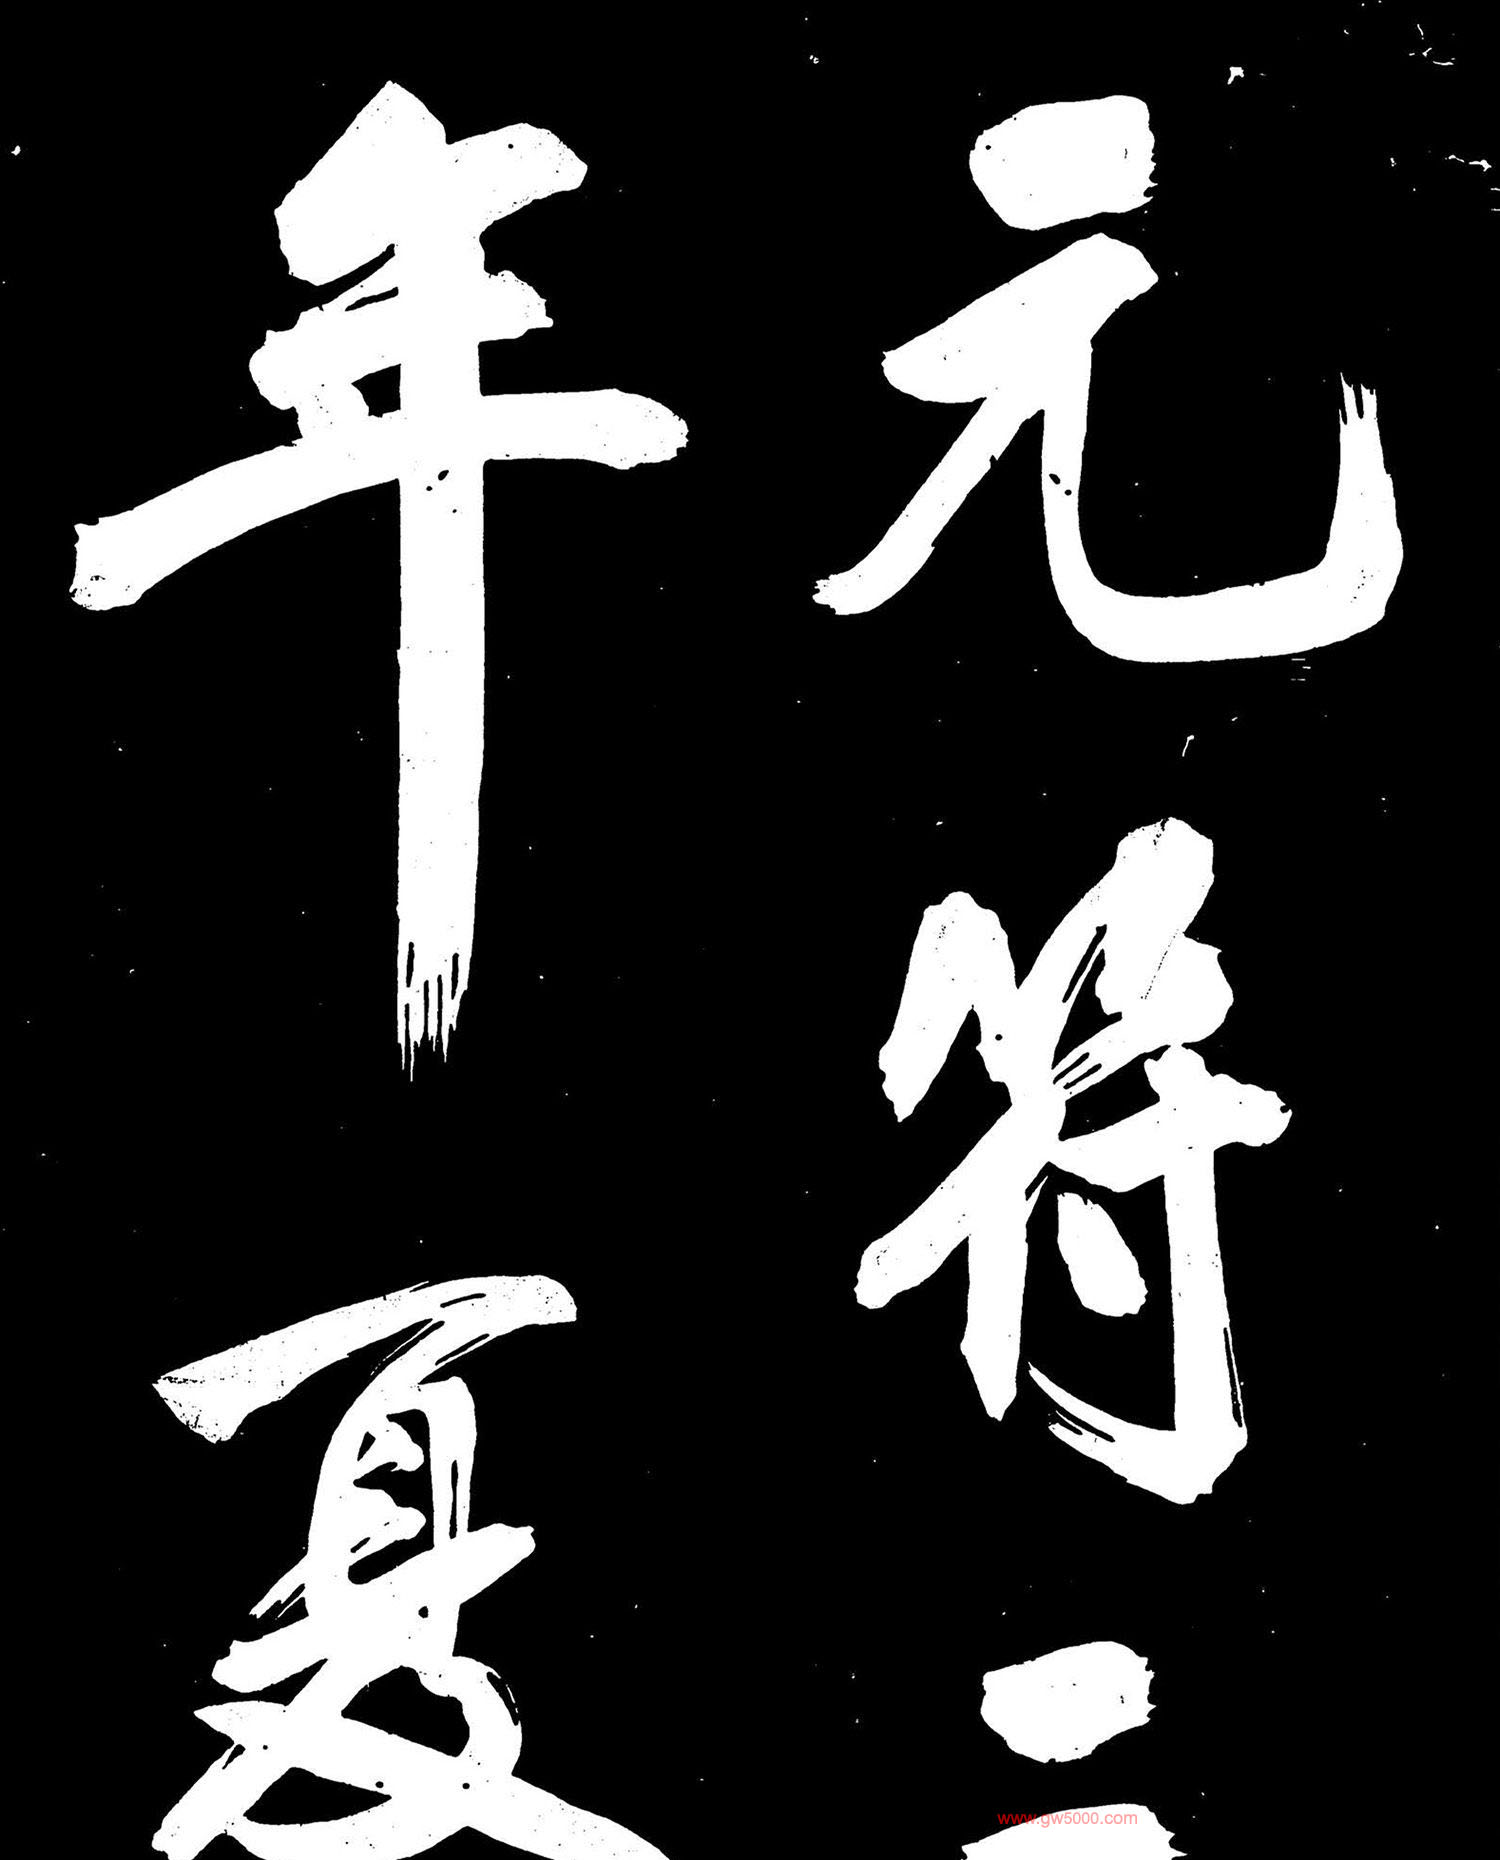 元符三
年夏
www.gw5000.com